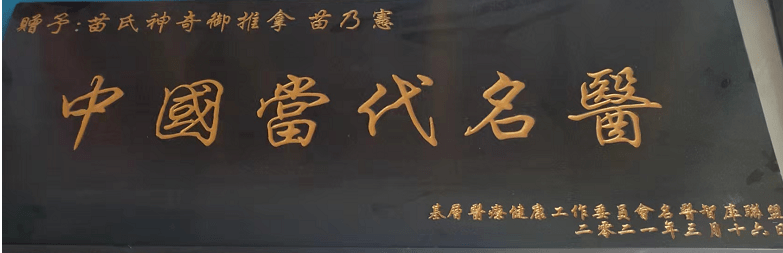 赠予:苗氏神奇御推拿 苗乃憲
中國當代名醫
基層醫療健康工作委員會名醫智库聯盟
二零二一年三月十六日